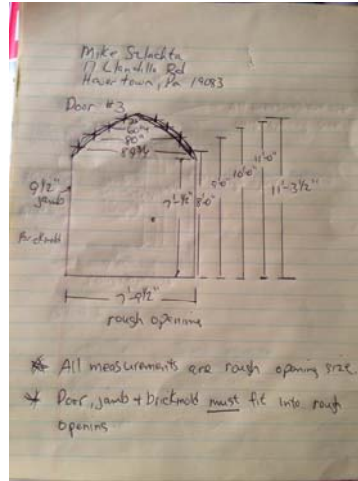 Mike Szlachta
17 Llandillo Rd
Havertown, Pa 19083
Door #3
60"
80"
89¾
9½"
jamb
Brickmold
7'-½"
8'-0"
9'-0"
10'-0"
11'-0"
11'-3½"
7'-9½"
rough opening
All measurements are rough opening size.
Door, jamb + brickmold must fit into rough
opening